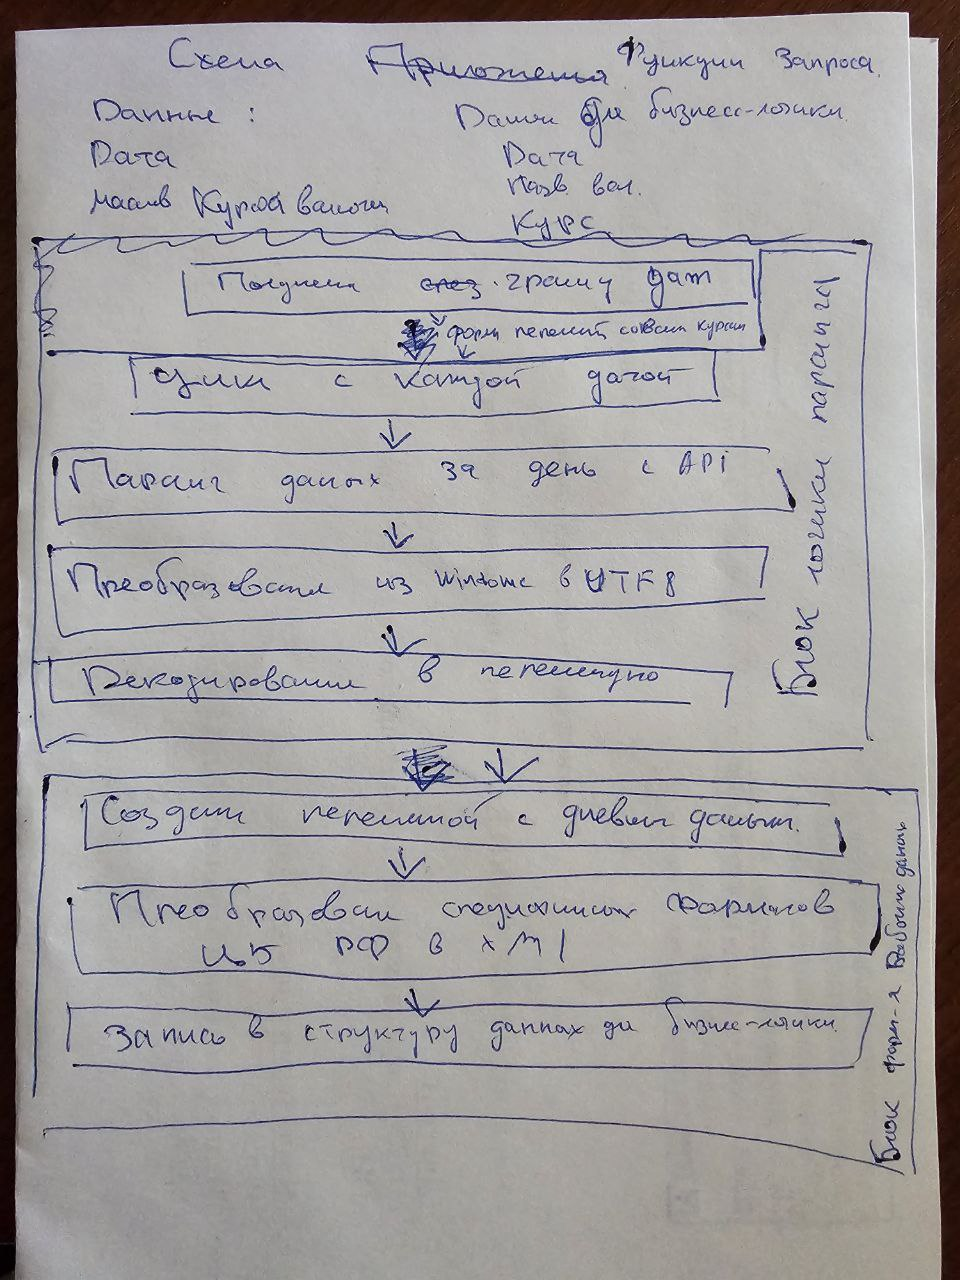 Схема Приложения Функции Запроса.
Данные : Данные для бизнес-логики.
Дата Дата
массив Курсов валюты Назв. вал.
Курс
Получени след. границ дат
форм перемной со всеми курсами
Цикл с каждой датой
Парсинг даных за день с API
Преобразование из Windows в UTF8
Декодирование в перемную
Блок логики парсинга
Создани перемной с дневными данными.
Преобразован специальных форматов
ЦБ РФ в XMl
Запись в структуру данных дл бизнес-логики.
Блок форм-я данных